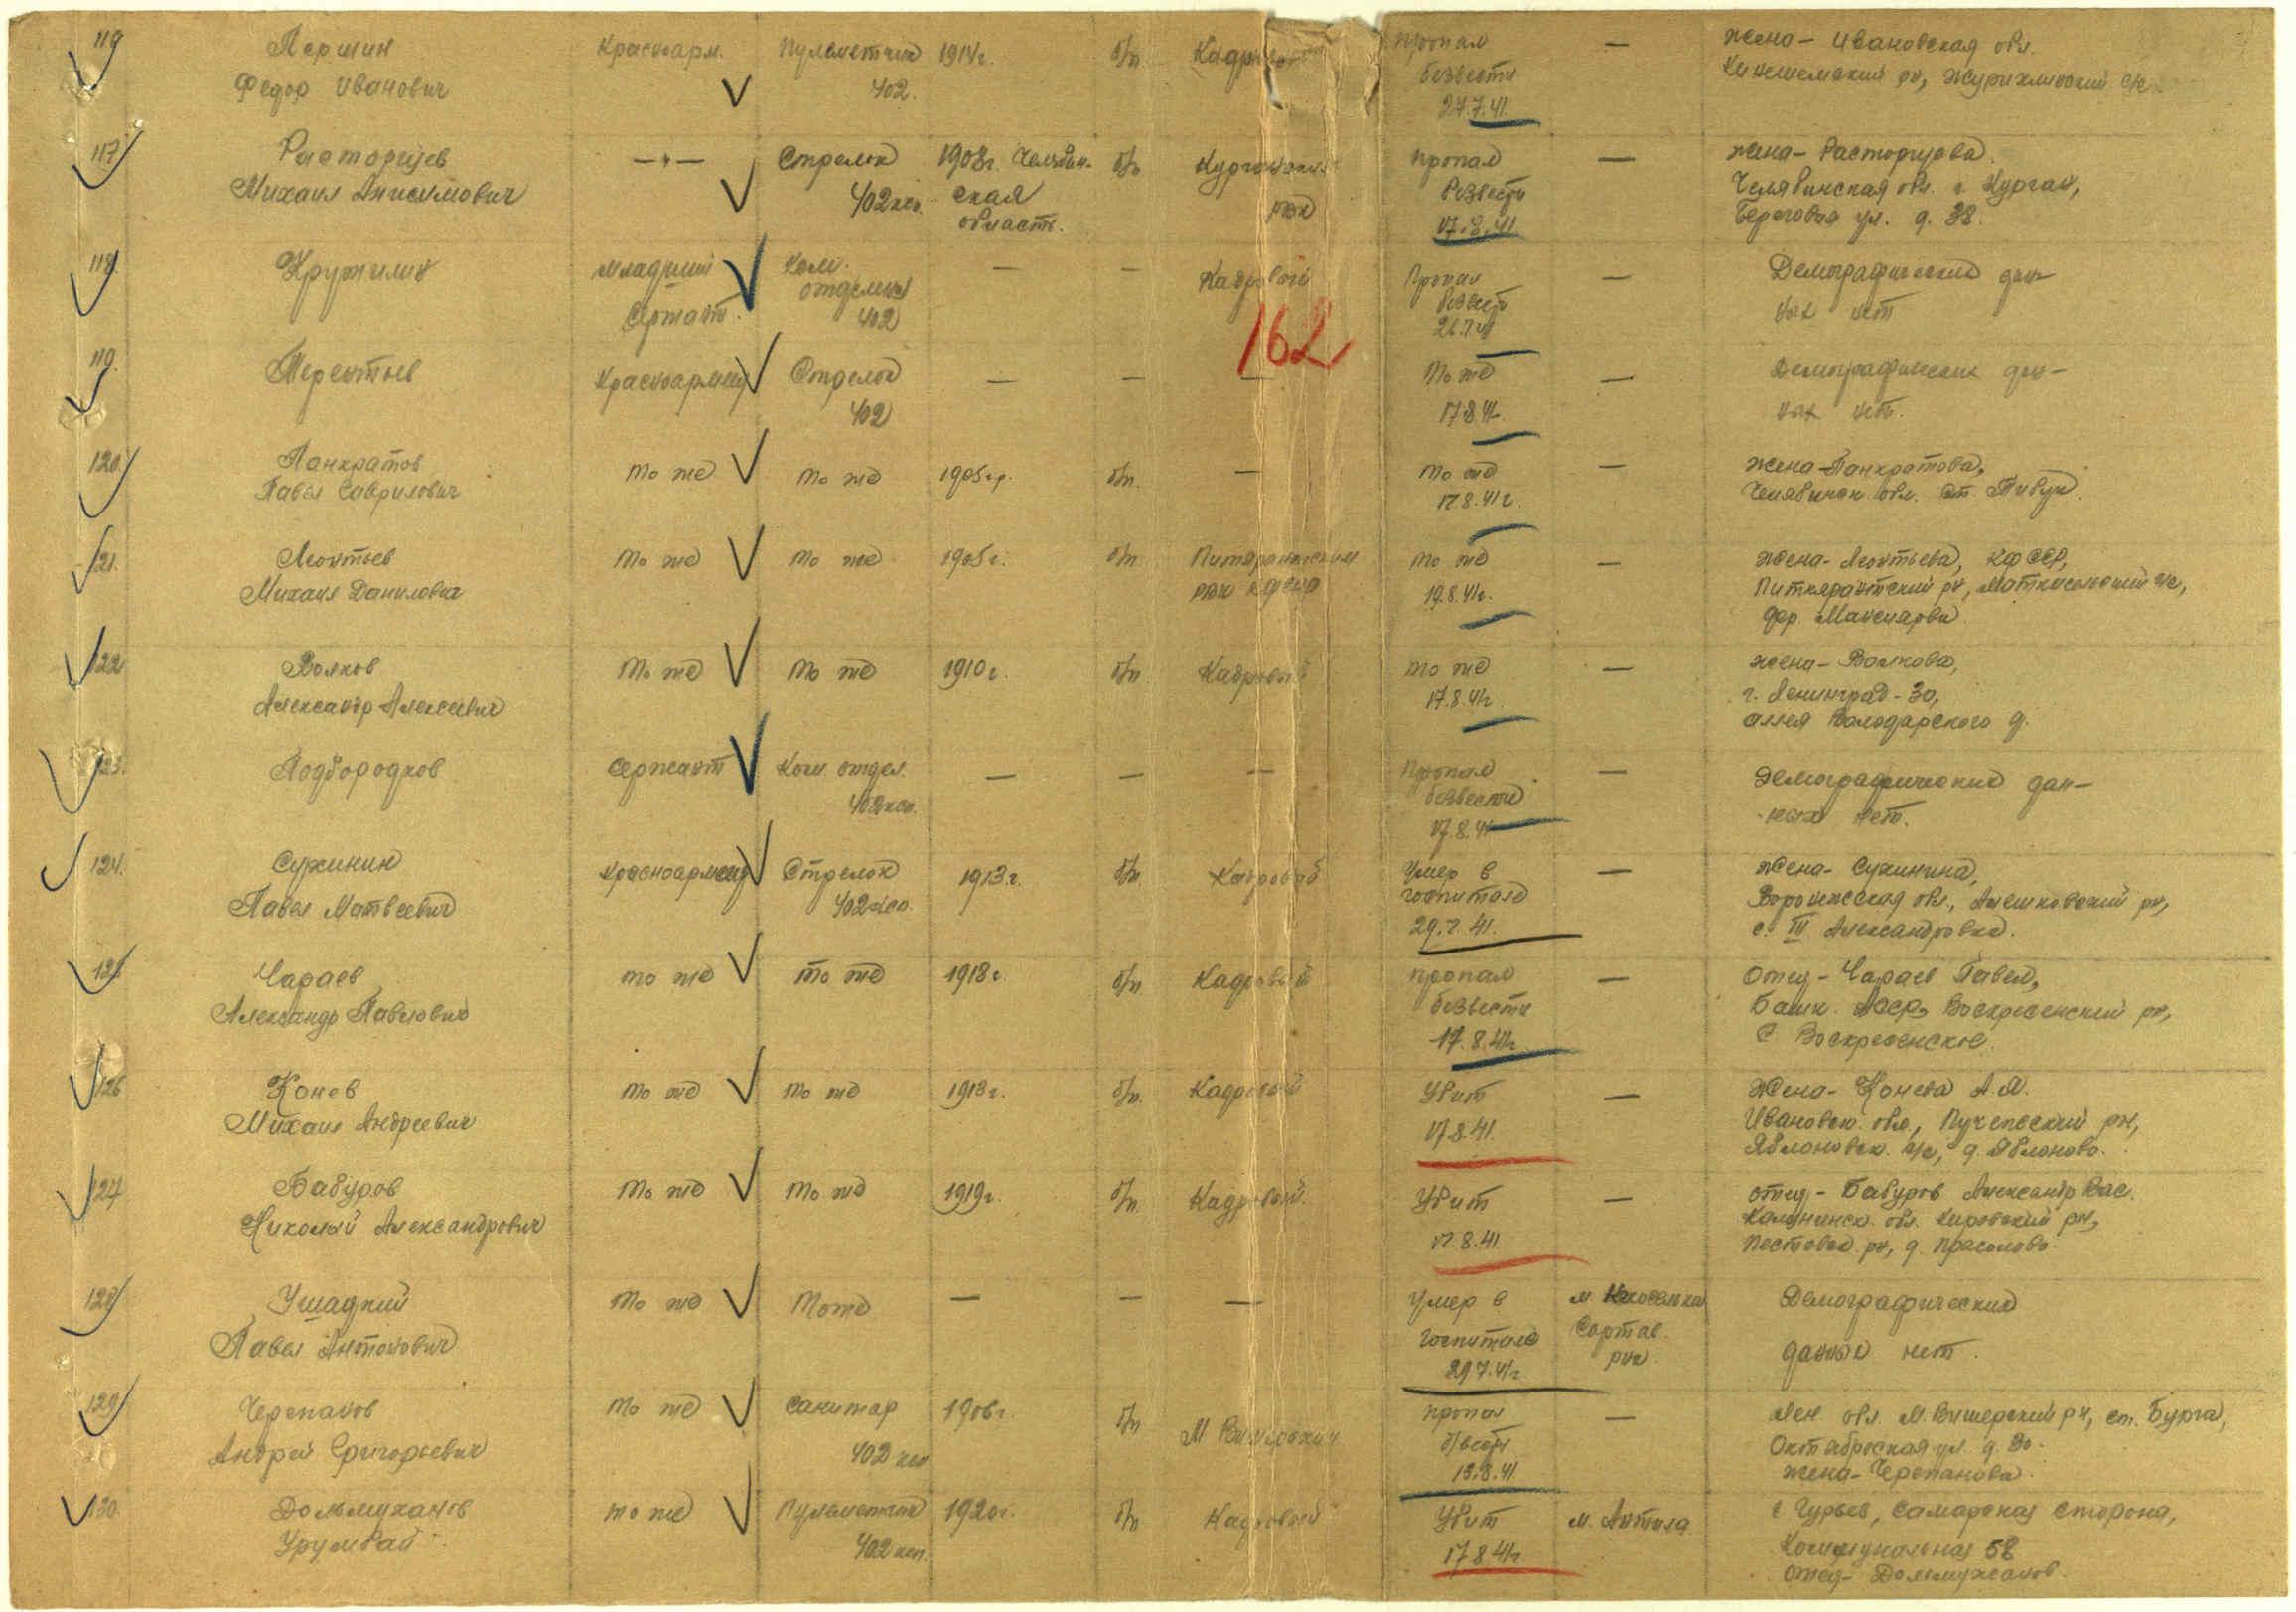 Першин Красноарм. Пулеметчик 1914г. б/п Кадровой пропал — жена – Ивановская обл.
Федор Иванович 402. безвести Кинешемский рн, с/с
27.7.41.
117 Расторгуев —"— Стрелок 1903г. Челябин- б/п Курганский пропал — жена – Расторгуева.
Михаил Анисимович 402 ксп. ская рвк безвести Челябинская обл. г. Курган,
область. 17.8.41 Береговая ул. д. 38.
118. Кружилин младший Ком. — — Кадровой Пропал — Демографических дан-
сержант. отделен безвести ных нет
402 26.7.41
162
119. Терентьев Красноармеец Стрелок — — — То же — Демографических дан-
402 17.8.41. ных нет.
120. Панкратов то же то же 1905г.р. б/п. — то же — жена – Панкратова,
Павел Гаврилович 17.8.41г. Челябинск. обл. ст.
121. Леонтьев то же то же 1905г. б/п. Питкярантским то же — жена – Леонтьева, КФССР,
Михаил Данилович рвк КФССР 19.8.41г. Питкярантский рн, с/с,
дер.
122 Волков то же то же 1910г. б/п Кадровый то же — жена – Волкова,
Александр Алексеевич 17.8.41г. г. Ленинград – 30,
аллея Володарского д.
123. Подбородков сержант Ком. отдел. — — — Пропал — Демографических дан-
402 ксп. безвести ных нет.
17.8.41
124. Сухинин красноармеец Стрелок 1913г. б/п Кадровой Умер в — жена – Сухинина,
Павел Матвеевич 402 ксп. госпитале Воронежская обл., Алешковский рн,
29.7.41. с. III Александровка.
125 Чараев то же то же 1918г. б/п Кадровый пропал — Отец – Чараев Павел,
Александр Павлович безвести Башк. АССР, Воскресенский рн,
17.8.41г. с Воскресенское.
126 Конев то же то же 1913г. б/п. Кадровый Убит — Жена – Конева А.Я.
Михаил Андреевич 17.8.41. Ивановск. обл., Пучежский рн,
Яблоновск. с/с, д. Яблоново.
127 Бабуров то же то же 1919г. б/п Кадровый. Убит — отец – Бабуров Александр Вас.
Николай Александрович 17.8.41 Калининск. обл. Кировский рн,
Пестовск. рн, д. Прасолово.
128 Ушацкий то же То же — — — Умер в м. Сортав. рн. Демографических
Павел Антонович госпитале данных нет.
29.7.41г.
129 Черепанов то же санитар 1906г. б/п М Вишерским пропал — Лен. обл. М. Вишерский рн, ст. Бурга,
Андрей Григорьевич 402 ксп б/вести Октябрьская ул. д. 30.
13.8.41. жена – Черепанова.
130. Дольмуханов то же Пулеметчик 1920г. б/п Кадровый Убит м. г Гурьев, Самарская сторона,
Урумбай 402 ксп. 17.8.41г Коммунальная 58
Отец – Дольмуханов.